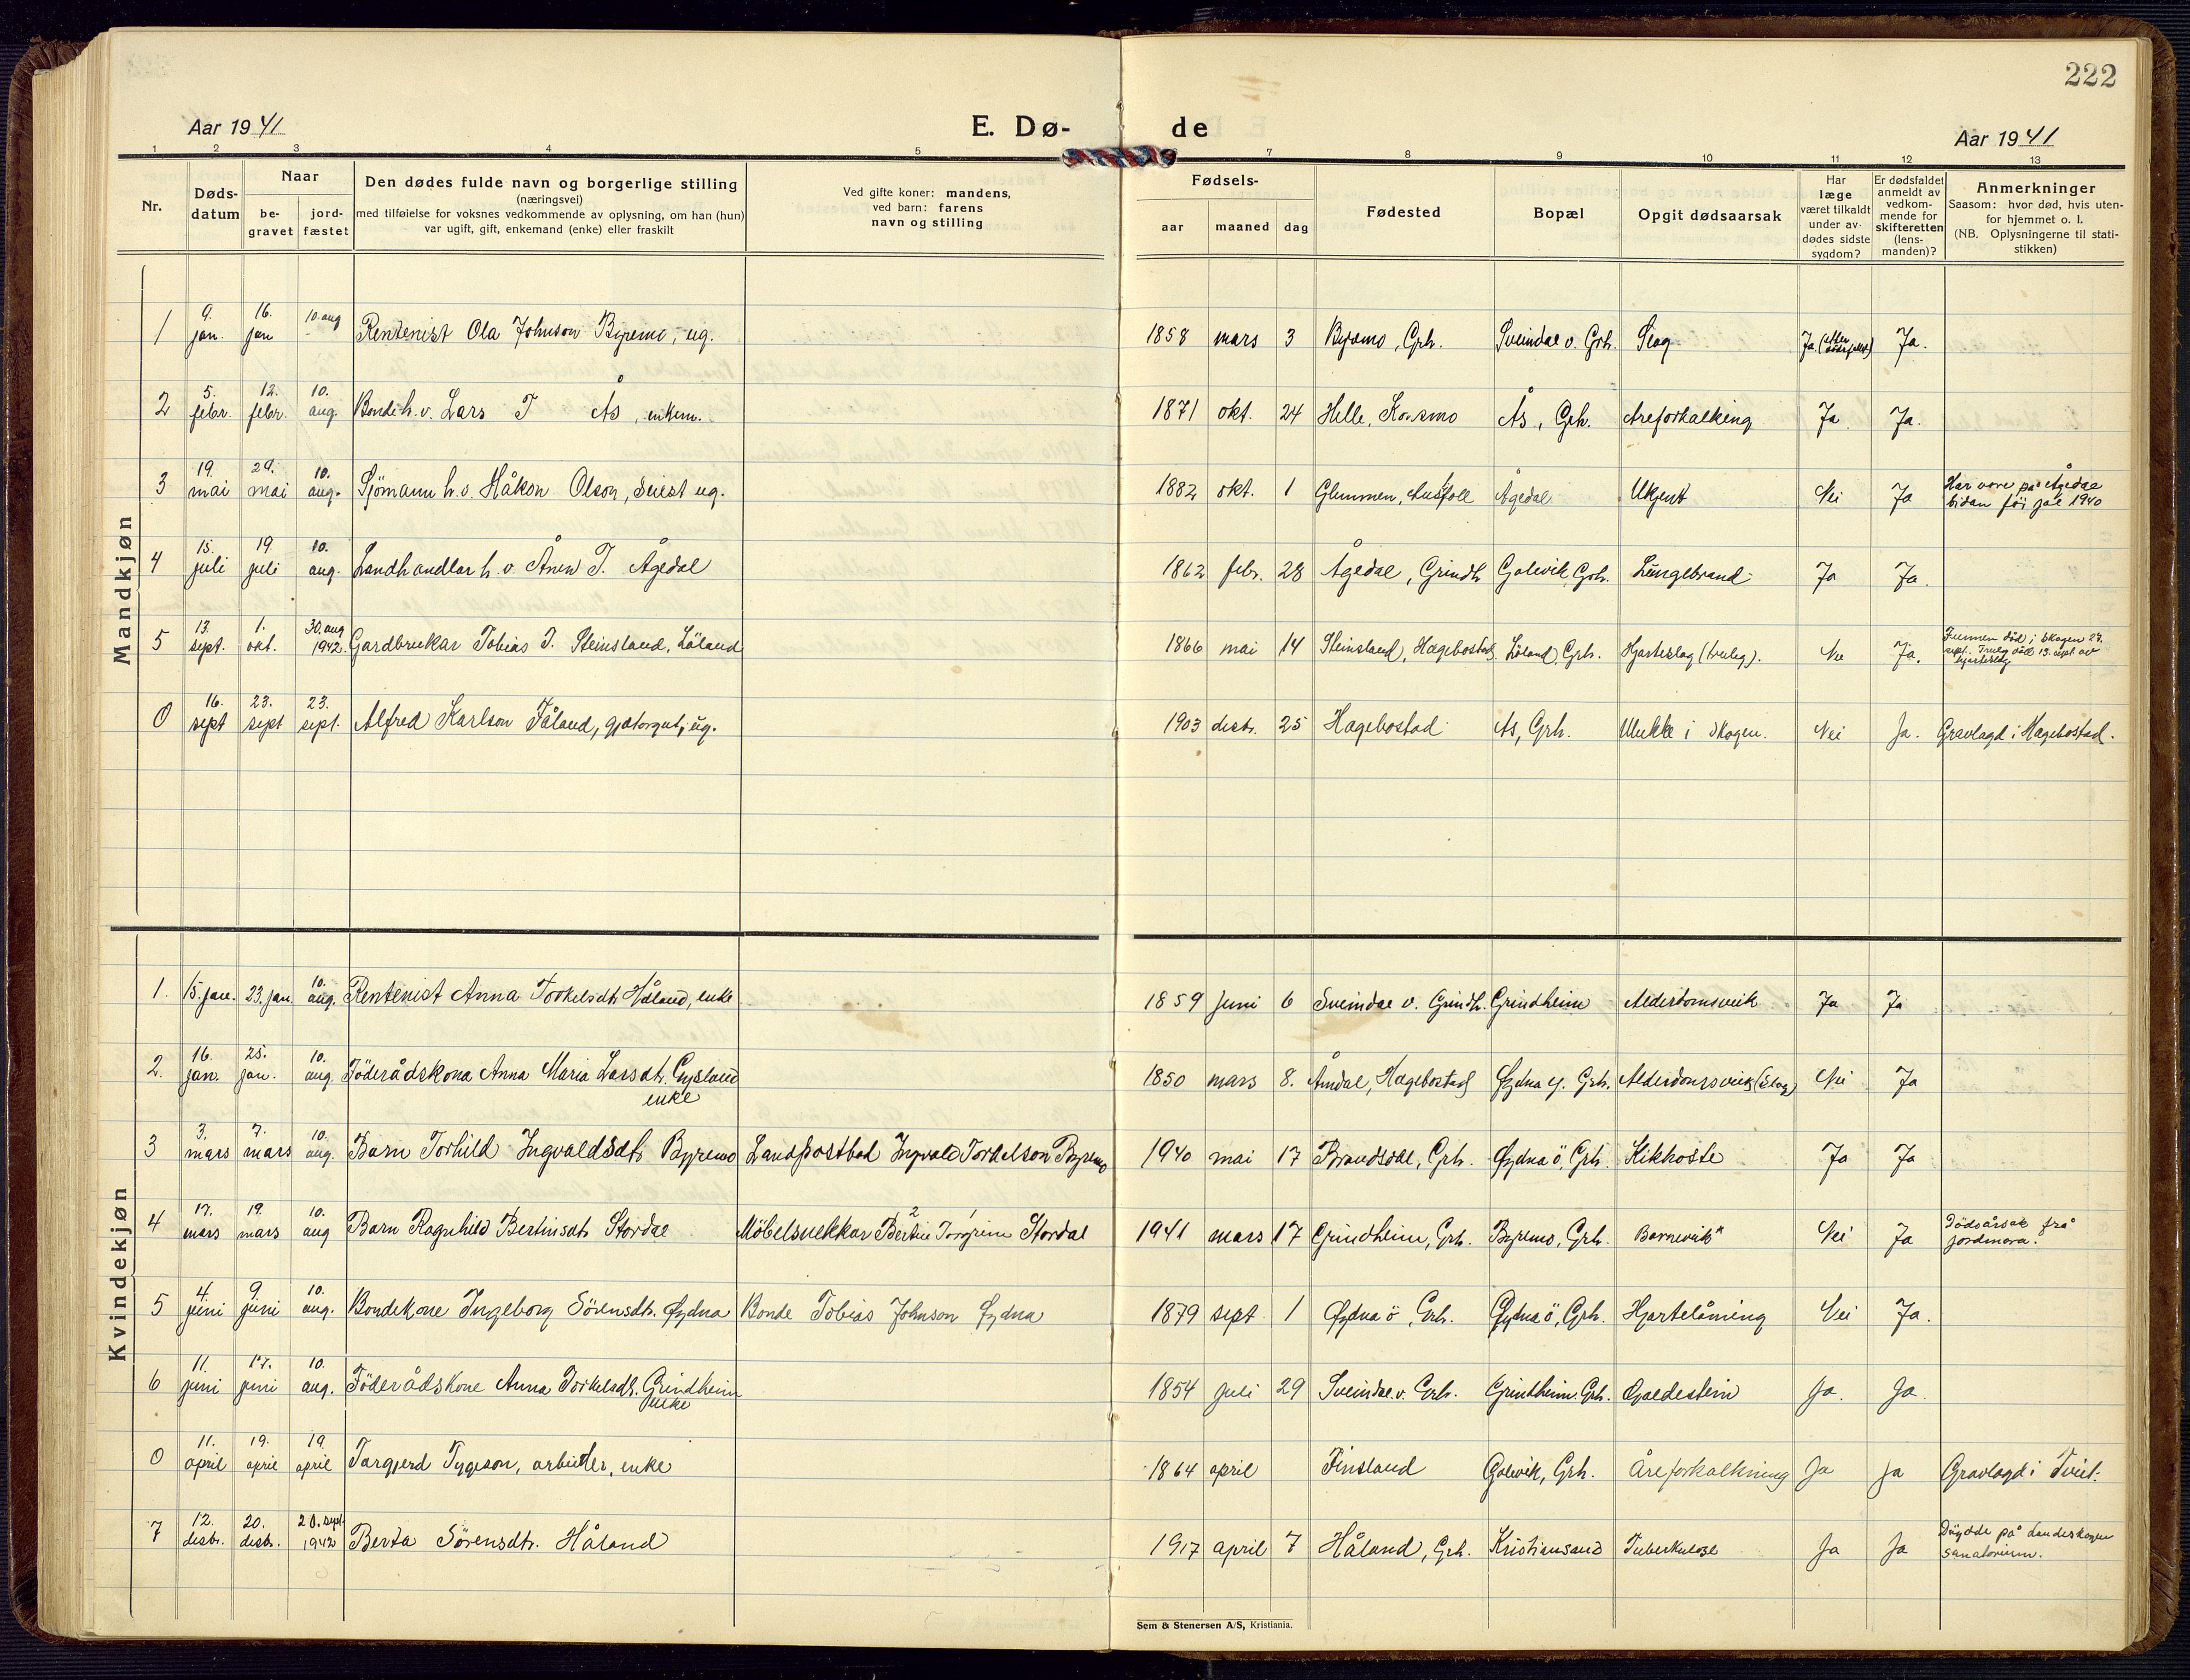 222
Aar 1941
E. Dø-
de
Aar 1941
1 2 3 4 5 7 8 9 10 11 12 13
Nr.
Døds-
datum
Naar
be-
gravet
jord-
fæstet
Den dødes fulde navn og borgerlige stilling
(næringsvei)
med tilføielse for voksnes vedkommende av oplysning, om han (hun)
var ugift, gift, enkemand (enke) eller fraskilt
Ved gifte koner: mandens,
ved barn: farens
navn og stilling
Fødsels-
aar maaned dag
Fødested
Bopæl
Opgit dødsaarsak
Har
læge
været tilkaldt
under av-
dødes sidste
sygdom?
Er dødsfaldet
anmeldt av
vedkom-
mende for
skifteretten
(lens-
manden)?
Anmerkninger
Saasom: hvor død, hvis uten-
for hjemmet o. l.
(NB. Oplysningerne til stati-
stikken)
Mandkjøn
1 9. jan. 16. jan 10. aug Rentenist Ola Johnson Byremo, ug. 1858 mars 3 Byremo, Grh. Sveindal v. Grh. Slag Ja (etter dødsfallet) Ja.
2 5. febr. 12. febr. 10. aug. Bonde h. v. Lars T Ås, enkem. 1871 okt. 24 Helle, Kvismo Ås, Grh. Areforkalking Ja Ja.
3 19. mai 29. mai 10. aug. Sjømann h. v. Håkon Olson, ug. 1882 okt. 1 Glemmen, Ågedal Ukjent Nei Ja Har vore på Ågedal
sidan før jol 1940
4 15. juli 19 juli 10. aug. Landhandlar h. v. Ånen T. Ågedal 1862 febr. 28 Ågedal, Grindh Galevik, Grh. Lungebrand Ja Ja.
5 13. sept. 1. okt. 30. aug 1942. Gardbrukar Tobias T. Steinsland, Løland 1866 mai 14 Steinsland, Hægebostad Løland, Grh. Hjarteslag (truleg). Nei Ja. Funnen død i skogen 27.
sept. Truleg død 13. sept. av
hjarteslag
0 16. sept 23. sept 23. sept. Alfred Karlson Fåland, gjætargut, ug. 1903 desbr. 25 Hægebostad Ås, Grh. Ulukke i skogen. Nei Ja. Gravlagd i Hægebostad.
Kvindekjøn
1. 15. jan. 23. jan 10. aug. Rentenist Anna Torkelsdt. Håland, enke 1859 juni 6 Sveindal v. Grindh. Grindheim Alderdomsveik Ja Ja
2. 16. jan. 25. jan. 10. aug. Føderådskona Anna Maria Larsdt. Gysland
enke 1850 mars 8. Åmdal, Hægebostad Øydna y. Grh. Alderdomsveik (slag) Nei Ja
3 3. mars 7. mars 10. aug. Barn Torhild Ingvaldsdt. Byremo Landpostbod Ingvald Torkelson Byremo 1940 mai 17 Brandsdal, Grh. Øydna ö, Grh. Kikhoste Ja Ja
4 17. mars 19. mars 10. aug Barn Ragnhild Bertinsdt. Stordal Möbelsnekkar Bertin Torgrim Stordal 1941 mars 17 Grindheim, Grh. Byremo, Grh. Barneveik" Nei Ja Dødsårsak frå
jordmora.
5 4. juni 9 juni 10. aug. Bondekone Ingeborg Sørensdt. Øydna Bonde Tobias Johnson Øydna 1879 sept 1 Øydna ö, Grh. Øydna ö, Grh. Hjartelåming Nei Ja.
6 11. juni 17. juni 10. aug. Føderådskone Anna Torkelsdt. Grindheim
enke 1854 juli 29 Sveindal v. Grh. Grindheim. Grh. Galdestein Ja. Ja.
0 11. april 19. april 19 april Targjerd Tygeson, arbeider, enke 1864 april Finsland Galevik, Grh. Åreforkalkning Ja ja Gravlagd i Tveit.
7 12. desbr. 20. desbr. 20. sept. 1942 Berta Sørensdt. Håland 1917 april 7 Håland, Grh. Kristiansand Tuberkulose Ja Ja Døydde på Landeskogen
sanatorium.
Sem & Stenersen A/S, Kristiania.